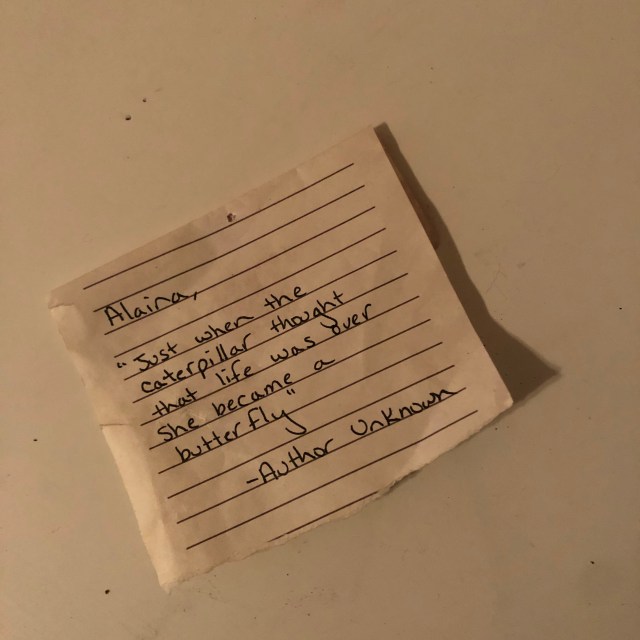 Alaina,
"Just when the
caterpillar thought
that life was over
she became a
butterfly"
-Author Unknown